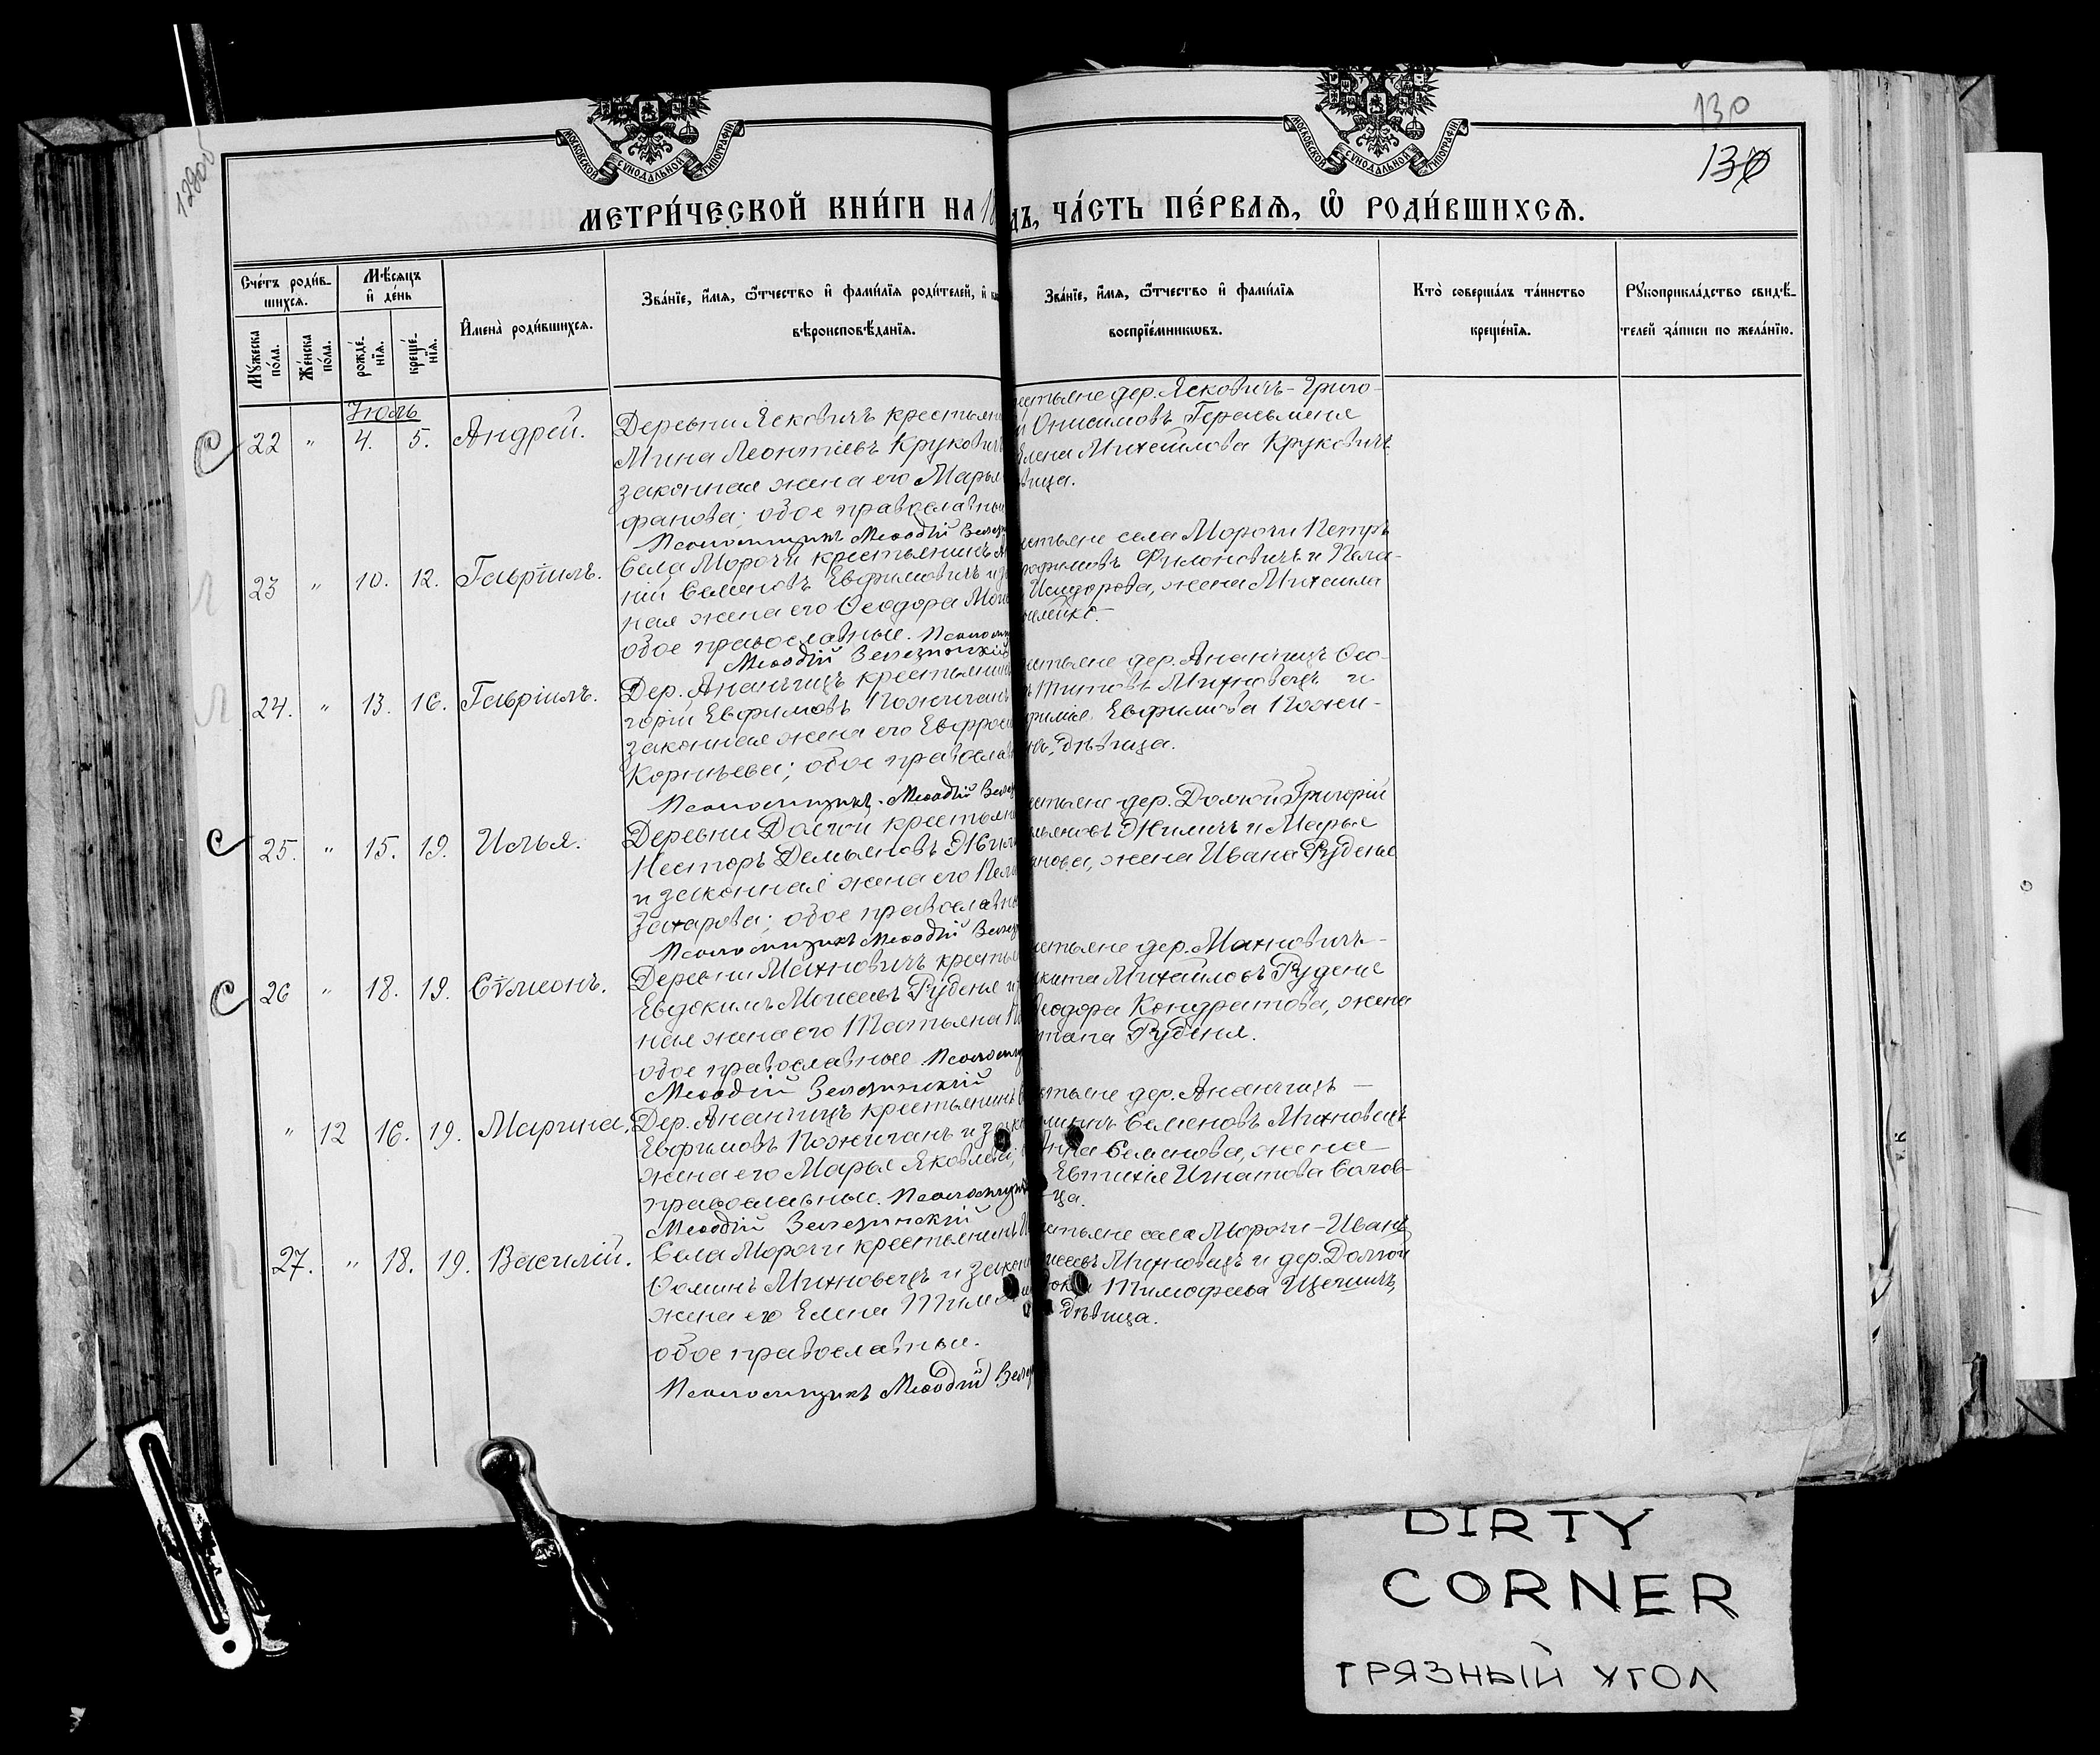 МОСКОВСКОЙ СѴНОДАЛЬНОЙ ТИПОГРАФІИ
МОСКОВСКОЙ СѴНОДАЛЬНОЙ ТИПОГРАФІИ
130
130
МЕТРИ́ЧЕСКОЙ КНИ́ГИ НА 18
ДЪ, ЧА́СТЬ ПЕ́РВАѦ, Ѽ РОДИ́ВШИХСѦ.
Сче́тъ роди́в-
шихсѧ.
Мѣ́сѧцъ
и҆ де́нь
Мꙋ́жеска по́ла.
Же́нска по́ла.
рожде́-нїѧ.
креще́-нїѧ.
И҆мена̀ роди́вшихсѧ.
Зва́нїе, и҆́мѧ, ѻ҆́тчество и҆ фами́лїѧ роди́телей, и҆
вѣроисповѣ́данїѧ.
Зва́нїе, и҆́мѧ, ѻ҆́тчество и҆ фами́лїѧ
воспрїе́мникѡвъ.
Кто̀ соверша́лъ та́инство
креще́нїѧ.
Рꙋкоприкла́дство свидѣ́-
телей за́писи по жела́нїю.
Іюль
22 " 4. 5. Андрей.
Деревни Ясковичъ крестьяни
Мина Леонтіевъ Крукович
законная жена его Марья
фанова; обое православны
Псаломщикъ Меѳодій
естьяне дер. Ясковичъ - Григо-
й Онисимовъ Герасименя
Елена Михайлова Круковичъ
вица.
23 " 10. 12. Гавріилъ.
Села Морочи крестьянинъ
ній Семеновъ Евфимовичъ и з
ная жена его Ѳеодора
обое православные. Псалом
Меѳодій
естьяне села Морочи Петръ
рофимовъ Филоновичъ и Пела-
Исидорова, жена Михаила
24. " 13. 16. Гавріилъ.
Дер. Ананчицъ крестьянин
горій Евфимовъ Пожиганъ
законная жена его Евфрос
Корнъева; обое православ
Псаломщикъ Меѳодій
естьяне дер. Ананчицъ Ѳео-
ъ Титовъ Михновецъ и
фимія Евфимова Пожи-
нъ, дѣвица.
25. " 15. 19. Илья.
Деревни Долгой крестьян
Несторъ Демьяновъ Жил
и законная жена его Пела
Захарова; обое православн
Псаломщикъ Меѳодій
естьяне дер. Долгой Григорій
мьяновъ Жиличъ и Марья
анова, жена Ивана Рубеня
26 " 18. 19. Сѵмеонъ.
Деревни Махновичъ кресть
Евдокимъ Моисеевъ Рубеня и
ная жена его Татьяна
обое православные. Псаломщ
Меѳодій
естьяне дер. Махновичъ -
Михайловъ Рубеня
еодора Кондратова, жена
тапа Рубеня.
" 12 16. 19. Марина.
Дер. Ананчицъ крестьянинъ
Евфимовъ Пожиганъ и закн
жена его Марья Яковлева;
православные. Псаломщикъ
Меѳодій
стьяне дер. Ананчицъ -
Семеновъ Михновецъ
Семенова, жена
Евтихія Игнатова
ца.
27. " 18. 19. Василій.
Села Морочи крестьянинъ
Ѳоминъ Михновецъ и закон
жена его Елена Тимо
обое православные.
Псаломщикъ Меѳодій
стьяне села Морочи - Иванъ
исеевъ Михновецъ и дер. Долгой
Тимофеева
дѣвица.
DIRTY
CORNER
ГРЯЗНЫЙ УГОЛ